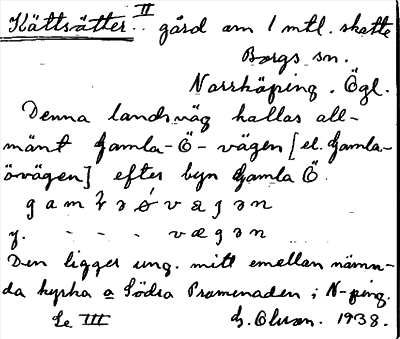 Kättsätter II gård om 1 mtl. skatte
Borgs sn.
Norrköping. Ögl.
Denna landsväg kallas all-
mänt Gamla-Ö-vägen [el. Gamla-
övägen] efter byn Gamla Ö.
gamɫə øvæɡən
y. - - - vægən
Den ligger ung. mitt emellan nämn-
da kyrka o Södra Promenaden i N-ping.
Se III
G. Olsson. 1938.